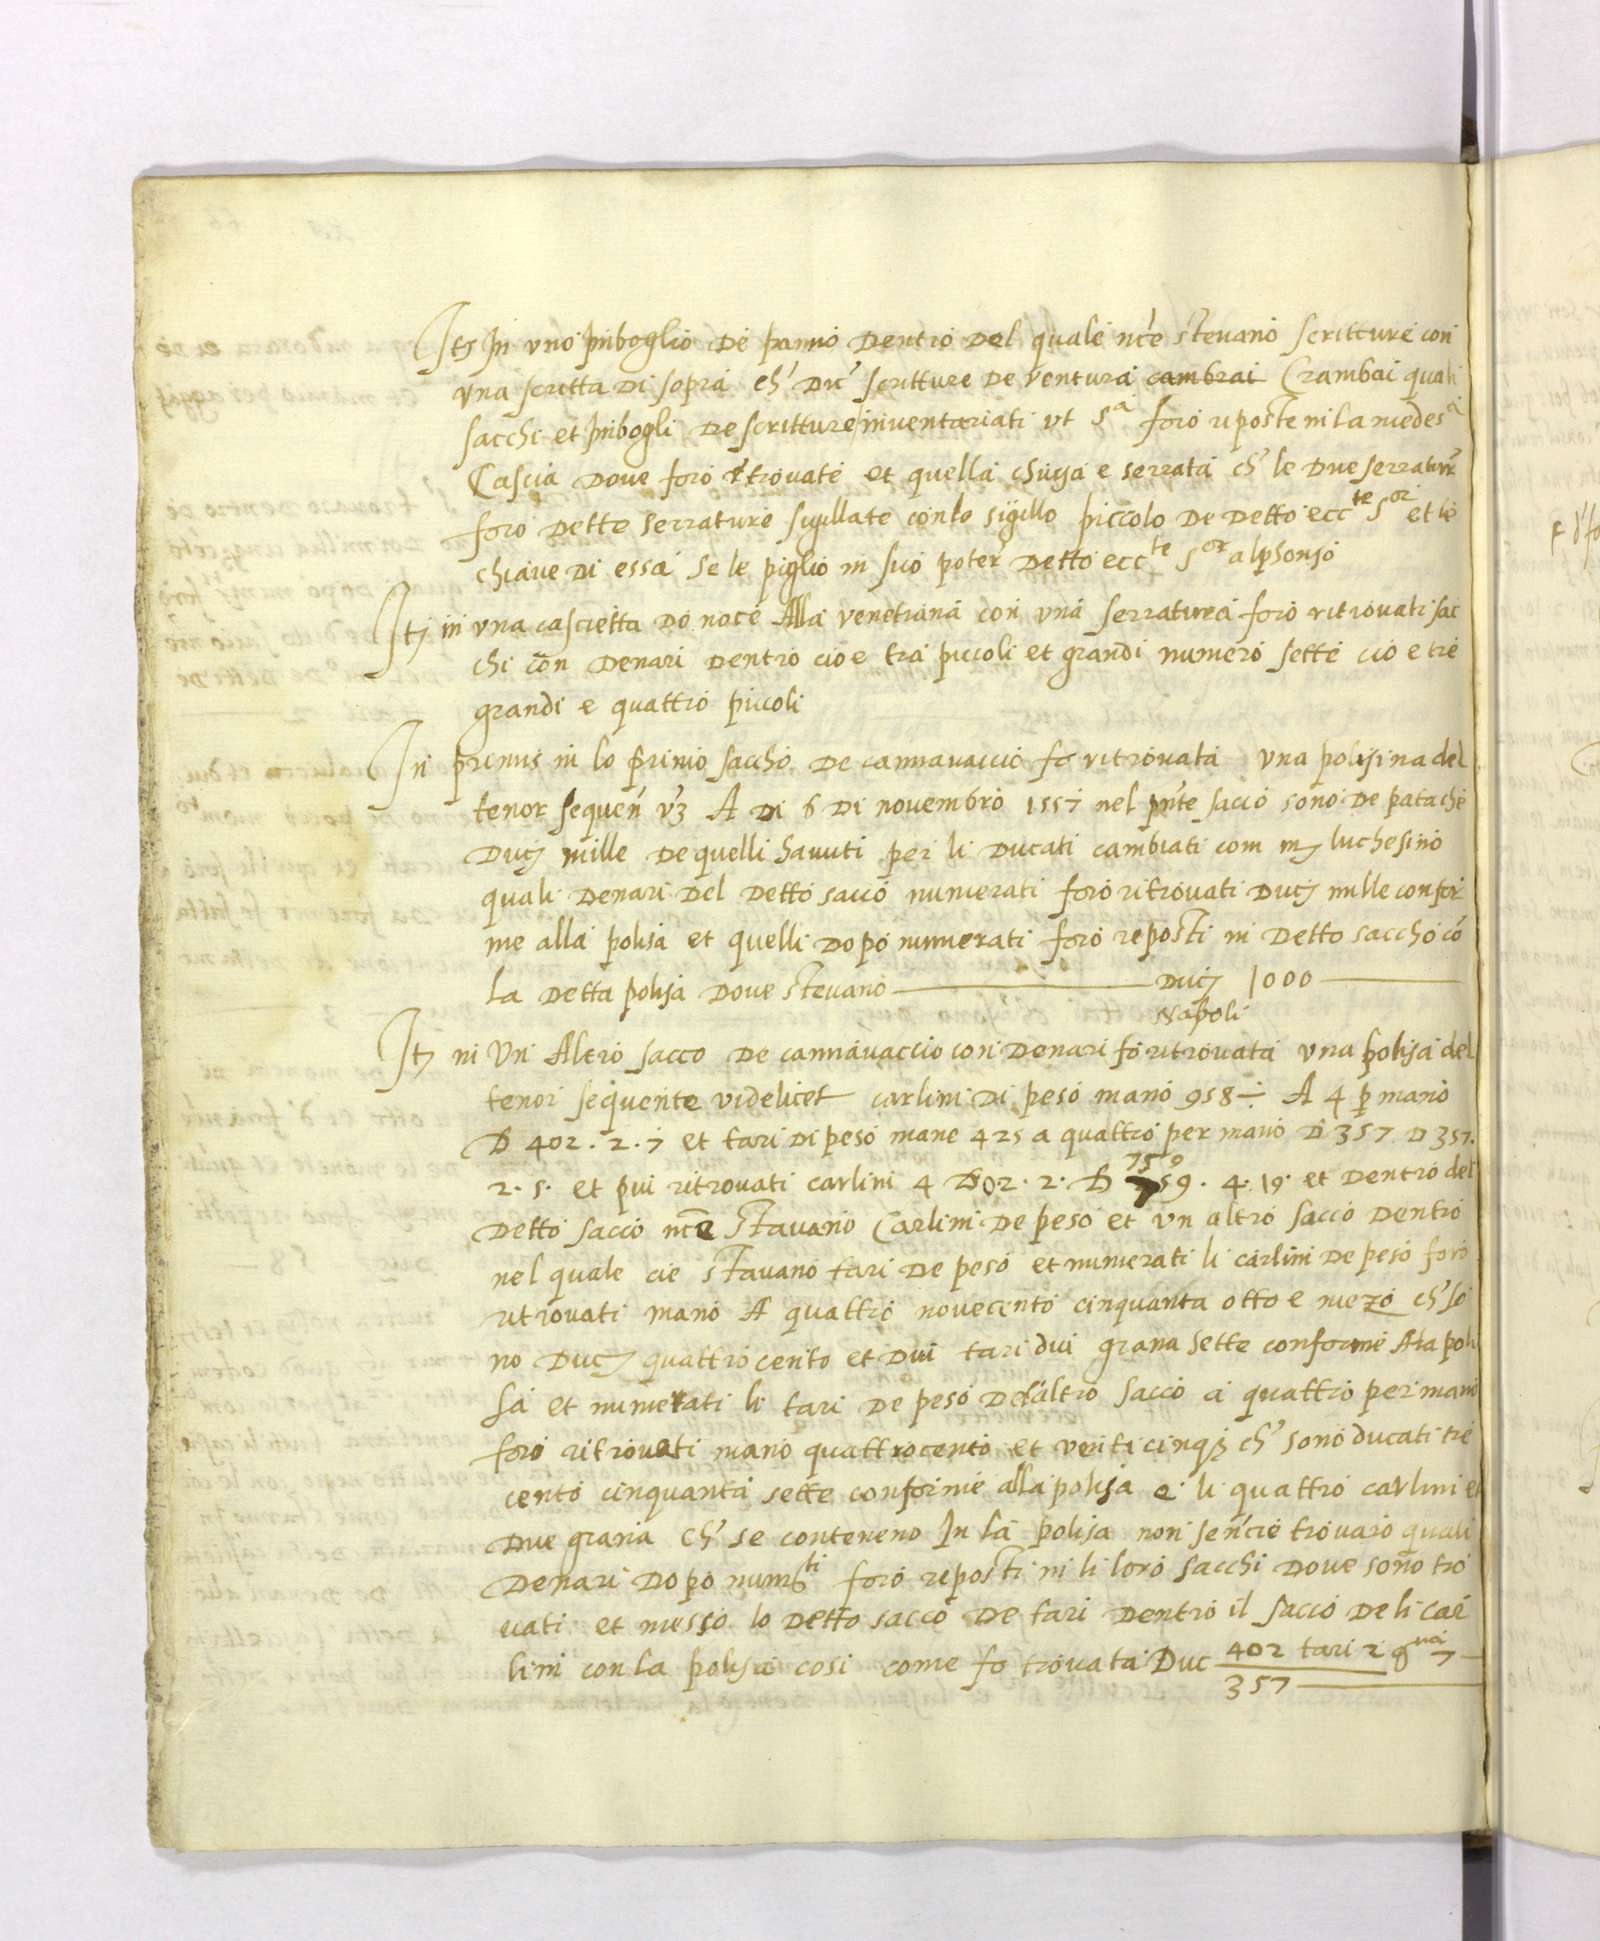 Itē In uno inboglio de panno dentro del quale nc'e stevano scritture con
una scritta di sopra ch' dic' scritture de ventura cambrai Crambai quali
sacchi et inbogli de scritture inventariati ut sᵃ foro riposte in la medesᵃ
Cascia dove foro ritrovate et quella chiusa e serrata ch' le due serratur'
foro dette serrature sigillate con lo sigillo piccolo de detto ecc^te s^or et le
chiave di essa se le piglio in suo poter' detto ecc^te s^or alphonso
Itē in una cascietta de noce Alla venetiana con una serratura foro ritrovati sac
chi con denari dentro cioe tra piccoli et grandi numero sette cio e tre
grandi e quattro piccoli
In primis in lo primo saccho de cannavaccio fo ritrovata una polisina del
tenor sequen' vz A di 6 di novembro 1557 nel pn'te sacco sono de patache
Ducj mille de quelli havuti per li ducati cambiati com mj luchesino
quali denari del detto sacco numerati foro ritrovati Ducj mille confor
me alla polisa et quelli dopo numerati foro reposti in detto saccho cō
la detta polisa dove stevano Ducj 1000
Napoli
Itē in Un Altro sacco de cannavaccio con denari fo ritrovata una polisa del
tenor sequente videlicet carlini di peso mano 958 ÷ A 4 p mano
D 402 . 2 . 7 et tari di peso mane 425 a quattro per mano D 357 D 357.
2 . 5 . et piu ritrovati carlini 4 D 02 . 2 . D 759 . 4 . 19 . et dentro del
detto sacco nc'e stavano Carlini de peso et un altro sacco dentro
nel quale cie stavano tari de peso et numerati li carlini de peso foro
ritrovati mano A quattro novecento cinquanta otto e mezo ch' so
no Ducj quattrocento et dui tari dui grana sette conforme Ala poli
sa et numerati li tari de peso del altro sacco a quattro per mano
foro ritrovati mano quattrocento et venticinq3 ch' sono ducati tre
cento cinquanta sette conforme alla polisa e li quattro carlini et
due grana ch' se conteneno In la polisa non se n'cie trovaro quali
denari dopo num^ti foro reposti in li loro sacchi dove sono tro
vati et messo lo detto sacco de tari dentro il sacco de li car
lini con la polisa cosi come fo trovata Duc 402 tari 2 g^na 7
357